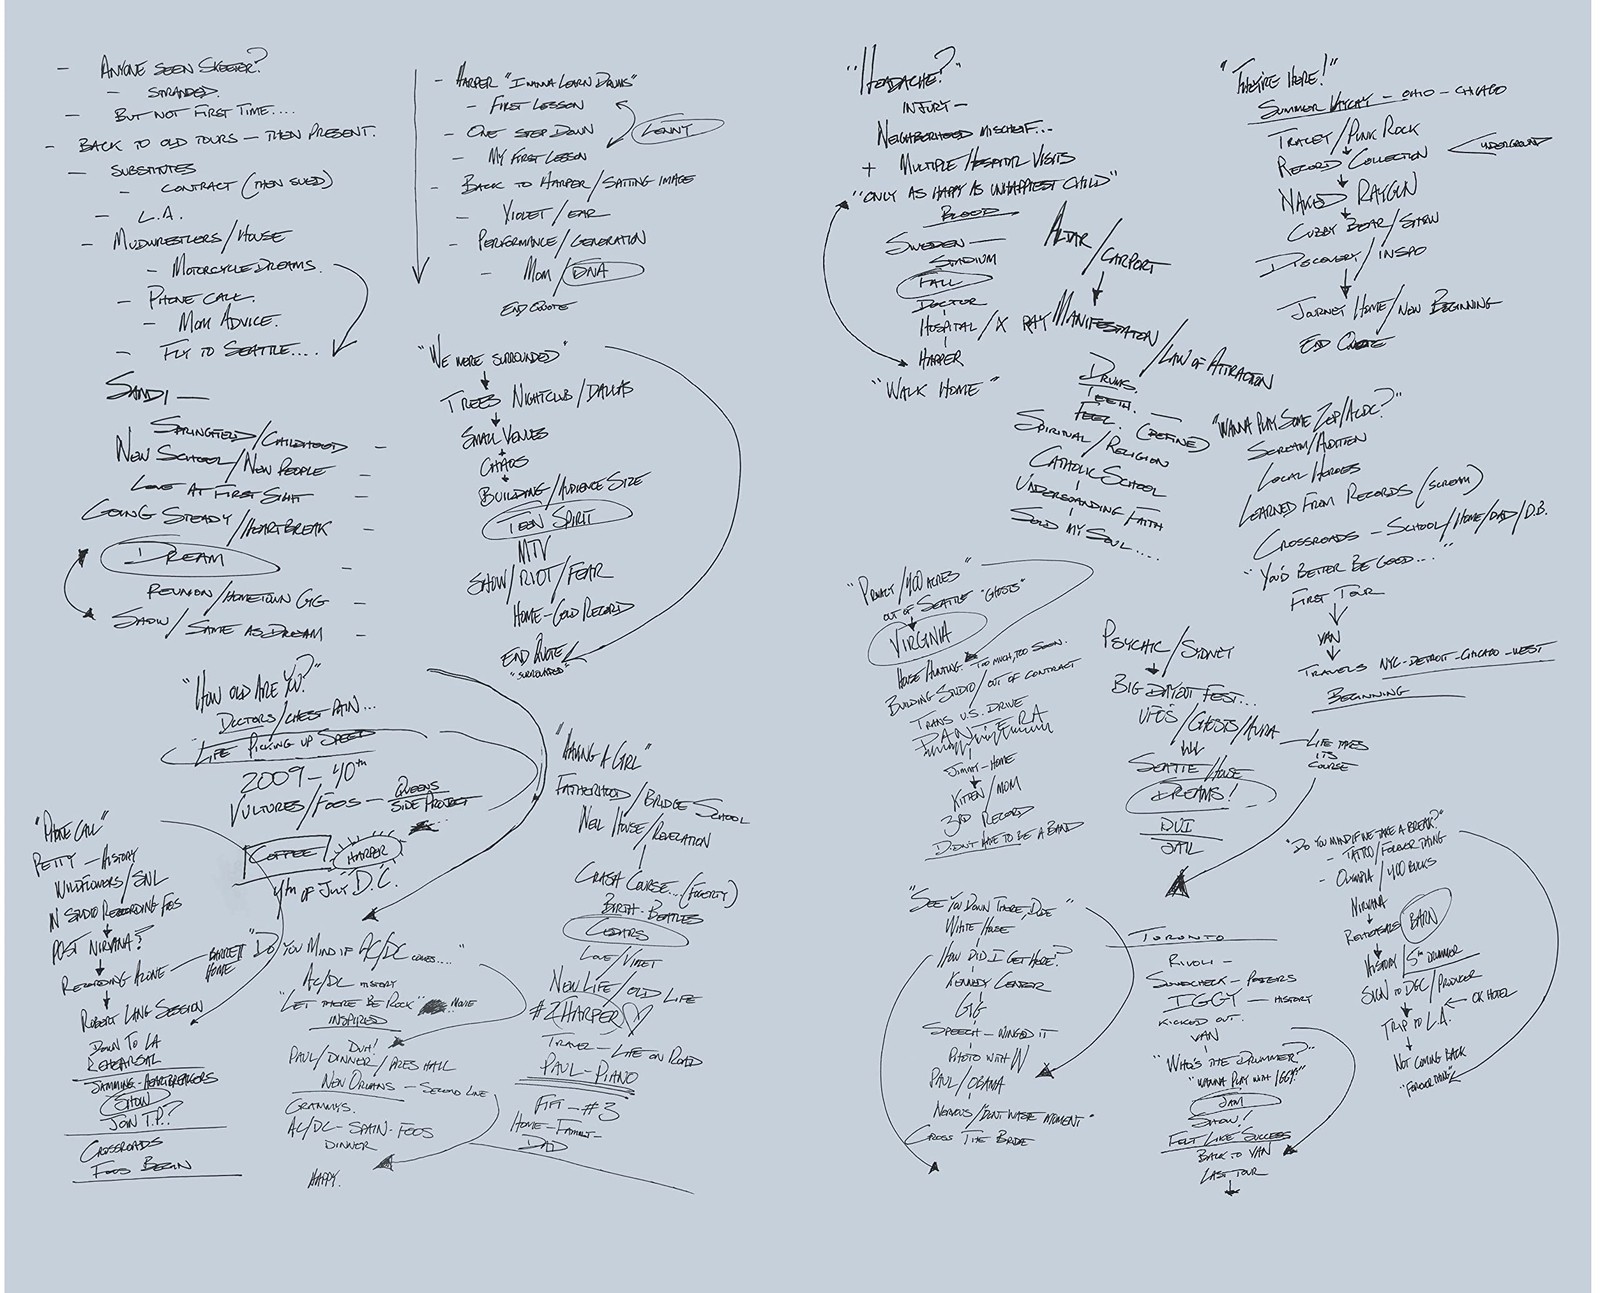 - ANYONE SEEN SKEETER?
- STRANDED.
- BUT NOT FIRST TIME....
- BACK TO OLD TOURS - THEN PRESENT.
- SUBSTITUTES
- CONTRACT (THEN SUED)
- L.A.
- MUDWRESTLERS/HOUSE
- MOTORCYCLE DREAMS.
- PHONE CALL.
- MOM ADVICE.
- FLY TO SEATTLE....
SANDI -
SPRINGFIELD/CHILDHOOD -
NEW SCHOOL/NEW PEOPLE -
LOVE AT FIRST SIGHT -
GOING STEADY/HEARTBREAK -
DREAM -
REUNION/HOMETOWN GIG -
SHOW/SAME AS DREAM -
- HARPER "I WANNA LEARN DRUMS"
- FIRST LESSON
- ONE STEP DOWN
LENNY
- MY FIRST LESSON
- BACK TO HARPER/SITTING IMAGE
- VIOLET/EAR
- PERFORMANCE/GENERATION
- MOM/DNA
END QUOTE
"WE WERE SURROUNDED"
TREES NIGHTCLUB/DALLAS
SMALL VENUES
CHAOS
BUILDING/AUDIENCE SIZE
TEEN SPIRIT
MTV
SHOW/RIOT/FEAR
HOME-GOLD RECORD
END QUOTE
"SURROUNDED"
"HOW OLD ARE YOU?"
DOCTORS/CHEST PAIN...
LIFE PICKING UP SPEED
2009-40th
VULTURES/FOOS - QUEENS
SIDE PROJECT
COFFEE
HARPER
4th OF JULY D.C.
"PHONE CALL"
PETTY - HISTORY
WILDFLOWERS/SNL
IN STUDIO RECORDING FOOS
POST NIRVANA?
RECORDING ALONE - BARRETT
HOME
ROBERT LANG SESSION
DOWN TO LA
REHEARSAL
JAMMING-HEARTBREAKERS
SHOW
JOIN T.P.?
CROSSROADS
FOOS BEGIN
"DO YOU MIND IF AC/DC COMES...."
AC/DC - HISTORY
"LET THERE BE ROCK" MOVIE
INSPIRED
DUH!
PAUL/DINNER/PRES HALL
NEW ORLEANS - SECOND LINE
GRAMMYS.
AC/DC - SPAIN-FOOS
DINNER
HAPPY.
"HAVING A GIRL"
FATHERHOOD/BRIDGE SCHOOL
NEIL HOUSE/REVELATION
CRASH COURSE...(FOGERTY)
BIRTH-BEATLES
CEDARS
LOVE/VIOLET
NEW LIFE/OLD LIFE
#2 HARPER
TRAVEL - LIFE ON ROAD
PAUL-PIANO
FIFI-#3
HOME-FAMILY-
DAD
"HEADACHE?"
INJURY -
NEIGHBORHOOD MISCHIEF...
+ MULTIPLE HOSPITAL VISITS
"ONLY AS HAPPY AS UNHAPPIEST CHILD"
BLOOD
SWEDEN -
STADIUM
FALL
DOCTOR
HOSPITAL/X RAY
HARPER
"WALK HOME"
ALTAR/
CARPORT
MANIFESTATION
/LAW OF ATTRACTION
DRUMS.
TEETH. -
FEEL. (DEFINED)
SPIRITUAL/RELIGION
CATHOLIC SCHOOL
UNDERSTANDING FAITH
SOLD MY SOUL....
"THEY'RE HERE!"
SUMMER VACAY - OHIO - CHICAGO
TRACEY/PUNK ROCK
RECORD COLLECTION
UNDERGROUND
NAKED RAYGUN
CUBBY BEAR/SHOW
DISCOVERY/INSPO
JOURNEY HOME/NEW BEGINNING
END QUOTE
"WANNA PLAY SOME ZEP/ACDC?"
SCREAM/AUDITION
LOCAL HEROES
LEARNED FROM RECORDS (SCREAM)
CROSSROADS - SCHOOL/HOME/DAD/D.B.
"YOU'D BETTER BE GOOD...."
FIRST TOUR
VAN
TRAVELS NYC-DETROIT-CHICAGO-WEST
BEGINNING
"PRIVACY/400 ACRES"
OUT OF SEATTLE "GHOSTS"
VIRGINIA
HOUSE HUNTING. TOO MUCH, TOO SOON.
BUILDING STUDIO/OUT OF CONTRACT
TRANS U.S. DRIVE
PANTERA
JIMMY-HOME
KITTEN/MOM
3RD RECORD
DIDN'T HAVE TO BE A BAND
PSYCHIC/SYDNEY
BIG DAY OUT FEST...
UFO'S/GHOSTS/AURA
SEATTLE HOUSE
DREAMS!
DUI
JAIL
LIFE TAKES
ITS
COURSE
"SEE YOU DOWN THERE, DUDE"
WHITE HOUSE
HOW DID I GET HERE?
KENNEDY CENTER
GIG
SPEECH - WINGED IT
PHOTO WITH W
PAUL/OBAMA
NERVOUS/"DONT WASTE MOMENT"
CROSS THE BRIDGE
TORONTO
RIVOLI -
SOUNDCHECK - POSTERS
IGGY - HISTORY
KICKED OUT.
VAN
"WHO'S THE DRUMMER?"
"WANNA PLAY WITH IGGY?"
JAM
SHOW!
FELT LIKE SUCCESS
BACK TO VAN
LAST TOUR
"DO YOU MIND IF WE TAKE A BREAK?"
- TATTOO/FOREVER THING
- OLYMPIA/400 BUCKS
NIRVANA
REHEARSALS BARN
HISTORY/5th DRUMMER
SIGN TO DGC/PRODUCER
TRIP TO L.A. OK HOTEL
NOT COMING BACK
"FOREVER THING"